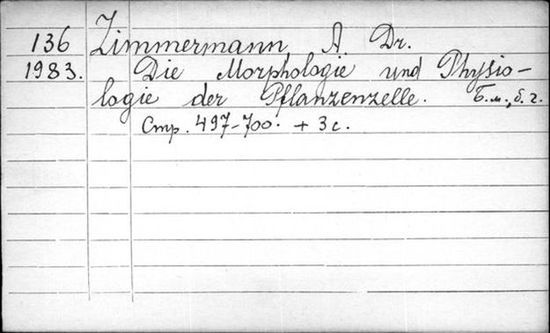 136 Zimmermann, A. Dr.
1983. Die Morphologie und Physio-
logie der Pflanzenzelle. Б.м., б.г.
Стр. 497-700. + 3 с.